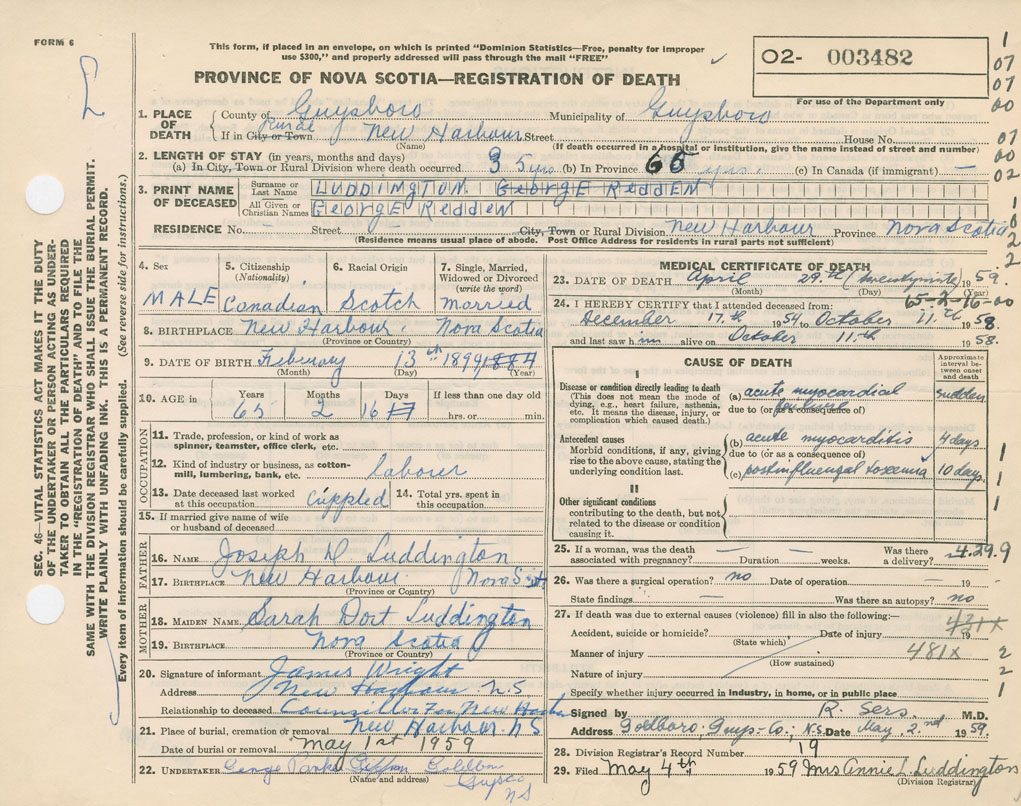 FORM 6
This form, if placed in an envelope, on which is printed "Dominion Statistics—Free, penalty for improper
use $300," and properly addressed will pass through the mail "FREE"
PROVINCE OF NOVA SCOTIA—REGISTRATION OF DEATH
02- 003482
For use of the Department only
1
07
07
00
07
00
02
1
0
2
2
SEC. 46—VITAL STATISTICS ACT MAKES IT THE DUTY
OF THE UNDERTAKER OR PERSON ACTING AS UNDER-
TAKER TO OBTAIN ALL THE PARTICULARS REQUIRED
IN THE "REGISTRATION OF DEATH" AND TO FILE THE
SAME WITH THE DIVISION REGISTRAR WHO SHALL ISSUE THE BURIAL PERMIT.
WRITE PLAINLY WITH UNFADING INK. THIS IS A PERMANENT RECORD.
Every item of information should be carefully supplied. (See reverse side for instructions.)
1. PLACE OF DEATH
County of Guysboro Municipality of Guysboro
If in City or Town Rural New Harbour Street House No.
(Name) (If death occurred in a hospital or institution, give the name instead of street and number)
2. LENGTH OF STAY (in years, months and days)
(a) In City, Town or Rural Division where death occurred 35 yrs (b) In Province 65 yrs. (c) In Canada (if immigrant) —
3. PRINT NAME OF DECEASED
Surname or Last Name LUDDINGTON GEORGE REDDEN
All Given or Christian Names GEORGE REDDEN
RESIDENCE No. — Street City, Town or Rural Division New Harbour Province Nova Scotia
(Residence means usual place of abode. Post Office Address for residents in rural parts not sufficient)
4. Sex MALE
5. Citizenship (Nationality) Canadian
6. Racial Origin Scotch
7. Single, Married, Widowed or Divorced (write the word) married
8. BIRTHPLACE New Harbour, Nova Scotia
(Province or Country)
9. DATE OF BIRTH February 13th 1894 1884
(Month) (Day) (Year)
10. AGE in Years 65 Months 2 Days 16 If less than one day old hrs. or min.
OCCUPATION
11. Trade, profession, or kind of work as
spinner, teamster, office clerk, etc.
12. Kind of industry or business, as cotton-
mill, lumbering, bank, etc. labour
13. Date deceased last worked at this occupation crippled 14. Total yrs. spent in this occupation
15. If married give name of wife
or husband of deceased
FATHER
16. NAME Joseph D Luddington
17. BIRTHPLACE New Harbour Nova Scotia
(Province or Country)
MOTHER
18. MAIDEN NAME Sarah Dort Luddington
19. BIRTHPLACE Nova Scotia
(Province or Country)
20. Signature of informant James Wright
Address New Harbour N.S
Relationship to deceased Councillor for New Harbour
21. Place of burial, cremation or removal New Harbour N S
Date of burial or removal May 1st 1959
22. UNDERTAKER George Goldboro
(Name and address) Guysco
NS
MEDICAL CERTIFICATE OF DEATH
23. DATE OF DEATH April 29th (twentyninth) 1959.
(Month) (Day) (Year)
65-2-16-00
24. I HEREBY CERTIFY that I attended deceased from:
December 17th 1954 to October 11th 1958.
and last saw him alive on October 11th 1958.
CAUSE OF DEATH
Approximate interval between onset and death
I
Disease or condition directly leading to death
(This does not mean the mode of
dying, e.g., heart failure, asthenia,
etc. It means the disease, injury, or
complication which caused death.)
(a) acute myocardial failure sudden
due to (or as a consequence of)
Antecedent causes
Morbid conditions, if any, giving
rise to the above cause, stating the
underlying condition last.
(b) acute myocarditis 4 days
due to (or as a consequence of)
(c) postinfluenzal toxemia 10 days.
1
1
II
Other significant conditions
contributing to the death, but not
related to the disease or condition
causing it.
1
25. If a woman, was the death associated with pregnancy? — Duration — weeks. Was there a delivery? —
429.9
26. Was there a surgical operation? no Date of operation — 19 -
State findings — Was there an autopsy? no
27. If death was due to external causes (violence) fill in also the following:—
431X
Accident, suicide or homicide? Date of injury 19
(State which)
Manner of injury 481X 2
(How sustained)
Nature of injury 2
Specify whether injury occurred in industry, in home, or in public place 1
Signed by R. Sers M.D.
Address Goldboro. Guys-Co; N.S. Date May 2nd 1959.
28. Division Registrar's Record Number 19
29. Filed May 4th 1959 Mrs Annie L. Luddington
(Division Registrar)